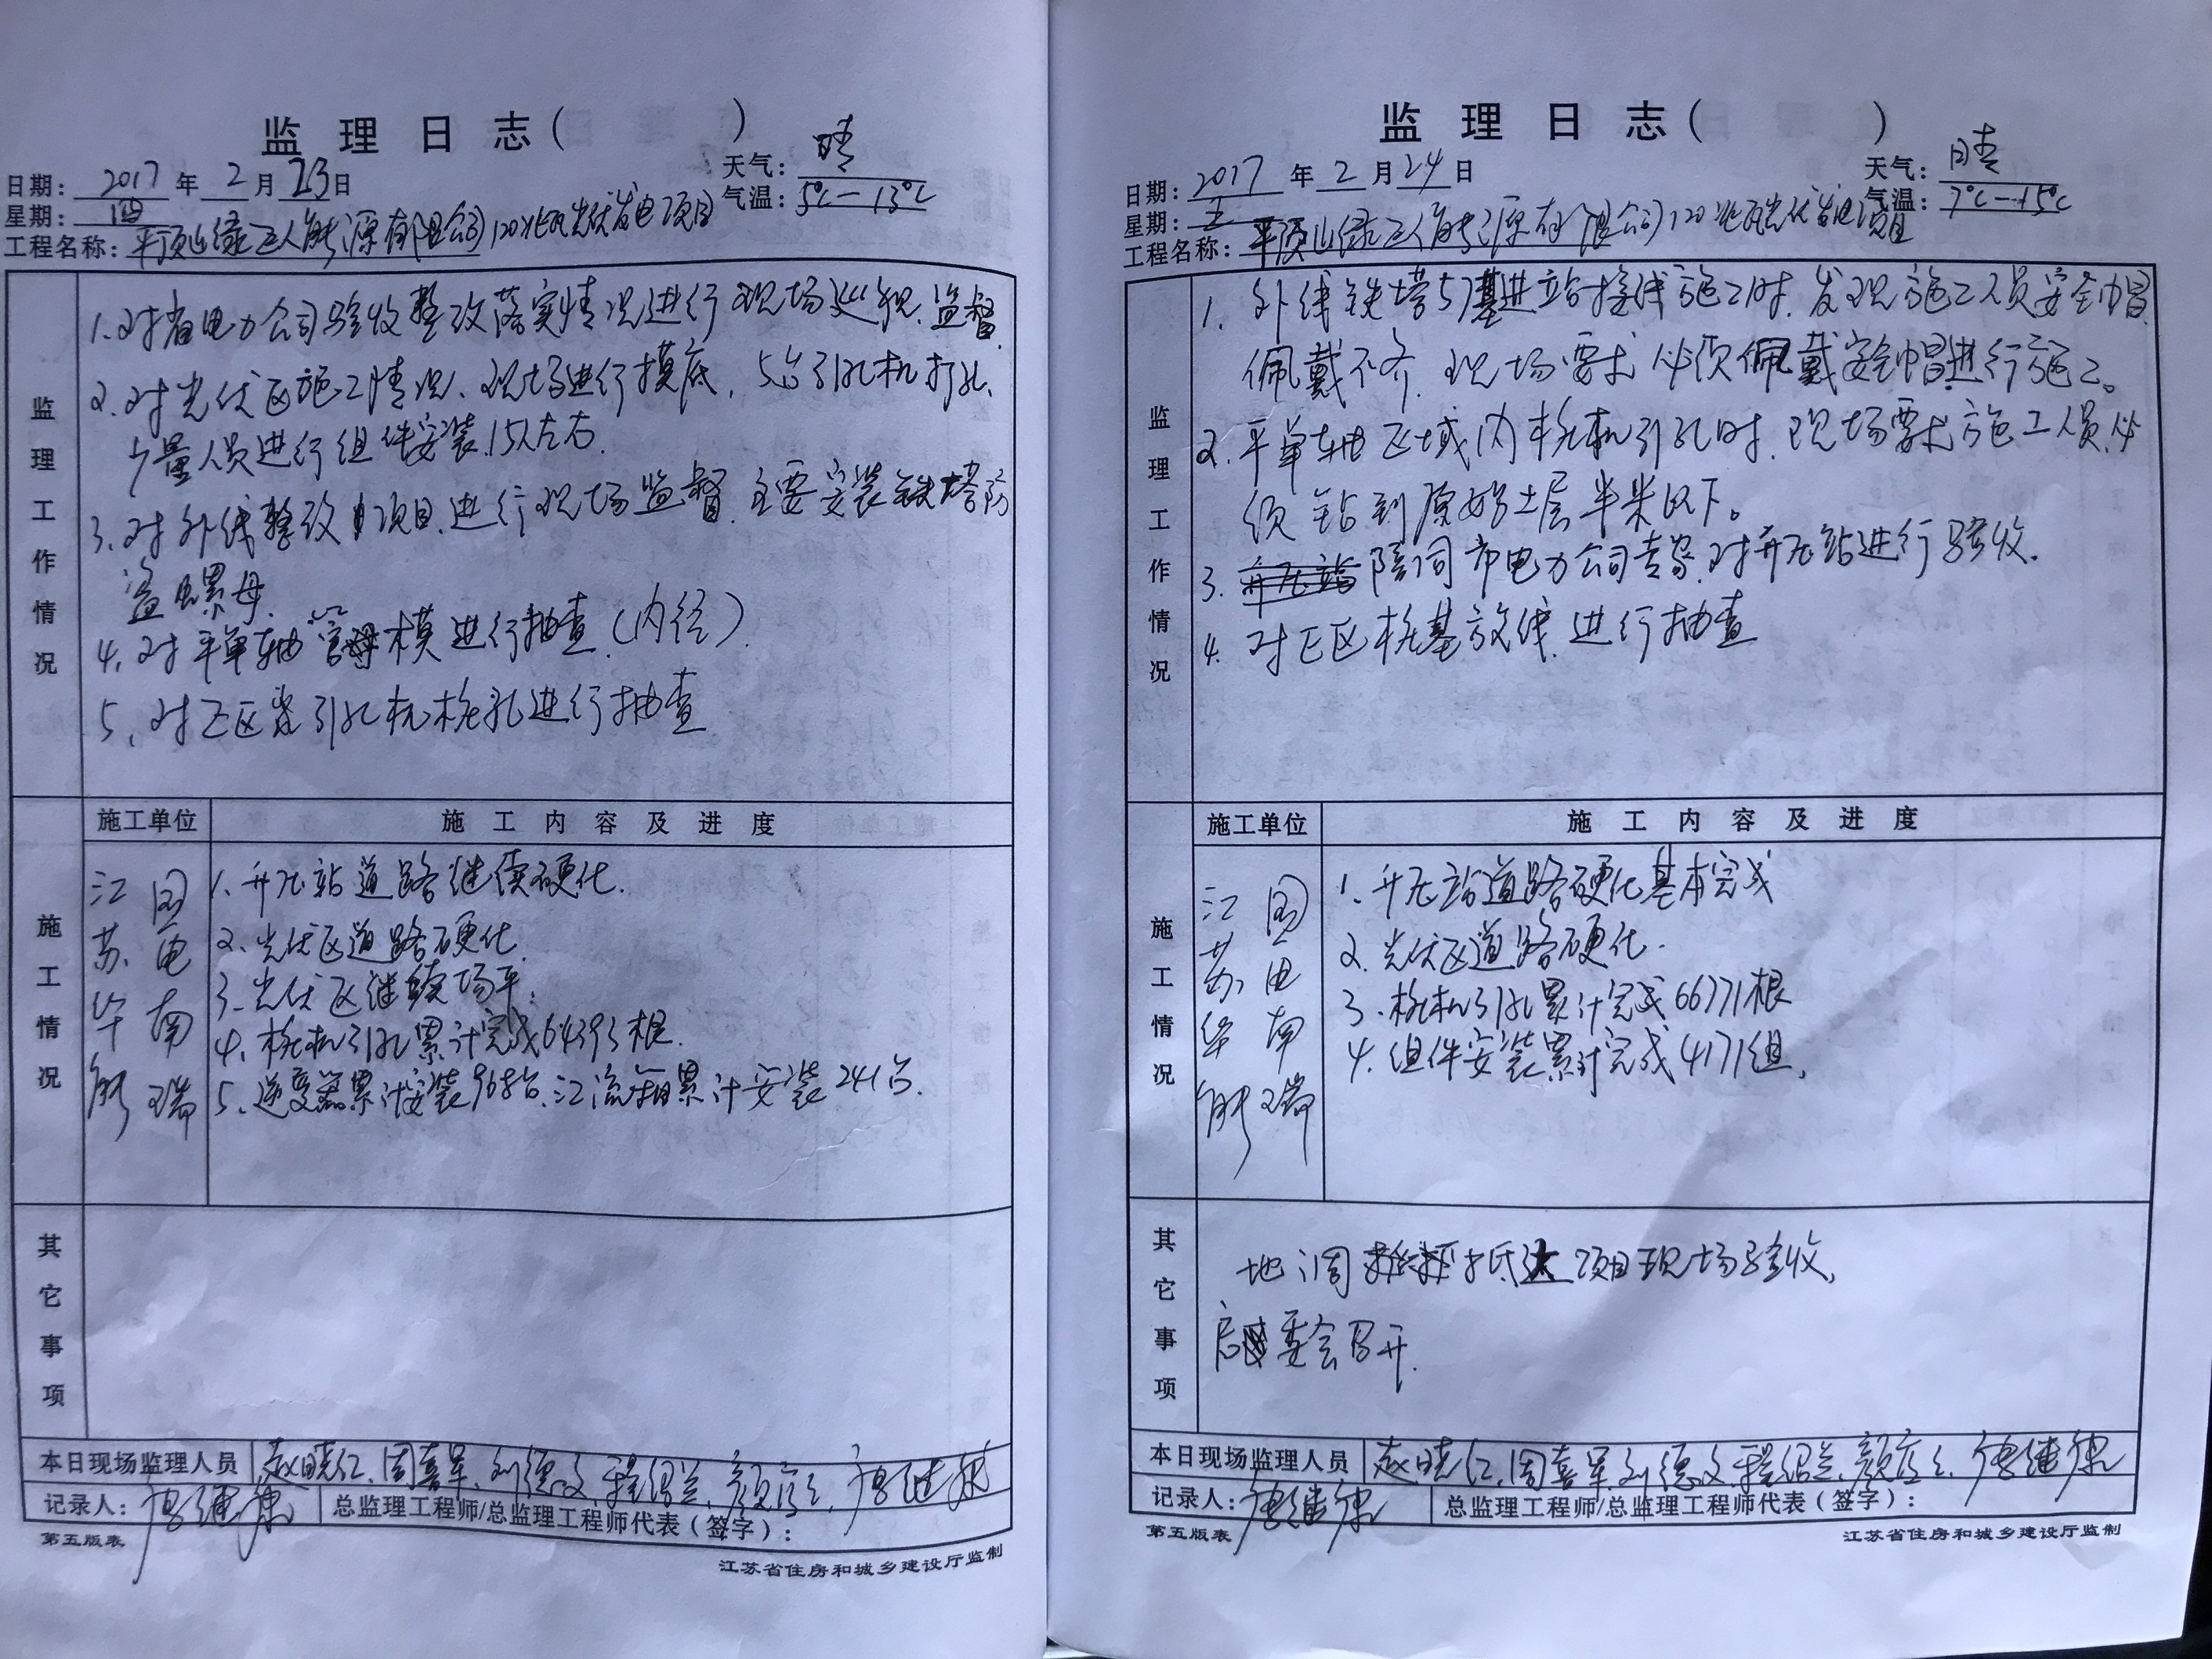 监理日志（ ）
日期：2017年2月23日
天气：晴
星期：四
气温：5℃—13℃
工程名称：平顶山绿巨人能源有限公司120兆瓦光伏发电项目
监理工作情况
1.对省电力公司验收整改落实情况进行现场巡视、监督
2.对光伏区施工情况、现场进行摸底，5台引孔机打孔、
少量人员进行组件安装15人左右.
3.对外线整改项目进行现场监督.主要安装铁塔防
盗螺母.
4.对平单轴模进行抽查(内径)
5、对E区引孔机桩孔进行抽查
施工情况
施工单位
施工内容及进度
江苏华能
国电南瑞
1、升压站道路继续硬化.
2、光伏区道路硬化.
3、光伏区继续场平.
4、桩机引孔累计完成64393根.
5、逆变器累计安装968台、汇流箱累计安装241台.
其它事项
本日现场监理人员 赵晓仁、周喜军、刘德文、程绍兰、颜
记录人：唐继康
总监理工程师/总监理工程师代表（签字）：
第五版表
江苏省住房和城乡建设厅监制
监理日志（ ）
日期：2017年2月24日
天气：晴
星期：五
气温：7℃—15℃
工程名称：平顶山绿巨人能源有限公司120兆瓦光伏发电项目
监理工作情况
1.外线铁塔57基进站接线施工时.发现施工人员安全帽
佩戴不齐.现场要求必须佩戴安全帽进行施工。
2.平单轴区域内桩机引孔时.现场要求施工人员必
须钻到原始土层半米以下。
3.陪同市电力公司专家.对升压站进行验收.
4.对E区桩基放线进行抽查
施工情况
施工单位
施工内容及进度
江苏华能
国电南瑞
1.升压站道路硬化基本完成
2.光伏区道路硬化.
3.桩机引孔累计完成66771根
4.组件安装累计完成4171组.
其它事项
地调抵达项目现场验收、
启委会召开.
本日现场监理人员 赵晓仁、周喜军、刘德文、程绍兰、颜、唐继康
记录人：唐继康
总监理工程师/总监理工程师代表（签字）：
第五版表
江苏省住房和城乡建设厅监制